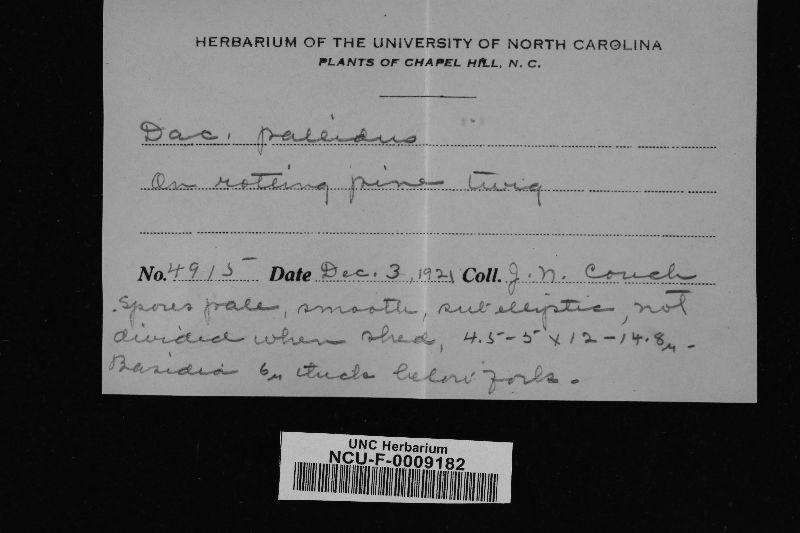 HERBARIUM OF THE UNIVERSITY OF NORTH CAROLINA
PLANTS OF CHAPEL HILL, N. C.
Dac. pallidus
On rotting pine twig
No. 4915 Date Dec. 3, 1921 Coll. J. N. Couch
Spores pale, smooth, subelliptic, not
divided when shed, 4.5-5 x 12-14.8µ.
Basidia 6µ thick below fork.
UNC Herbarium
NCU-F-0009182